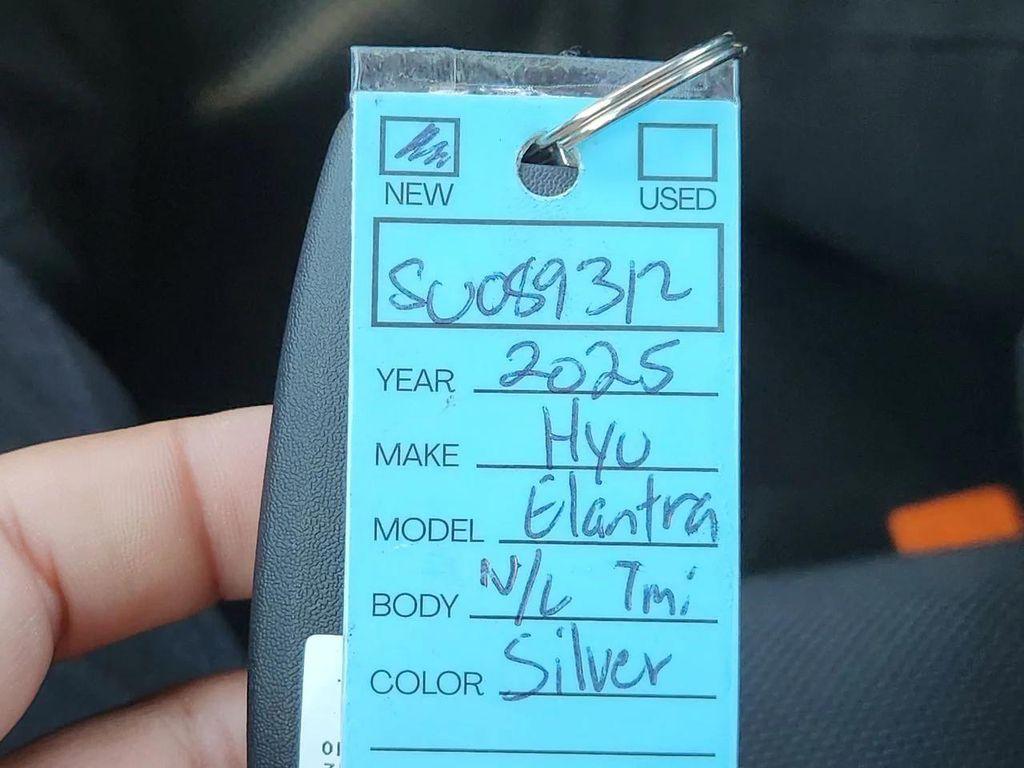 NEW USED
SU089312
YEAR 2025
MAKE Hyu
MODEL Elantra
BODY N/L 7mi
COLOR Silver